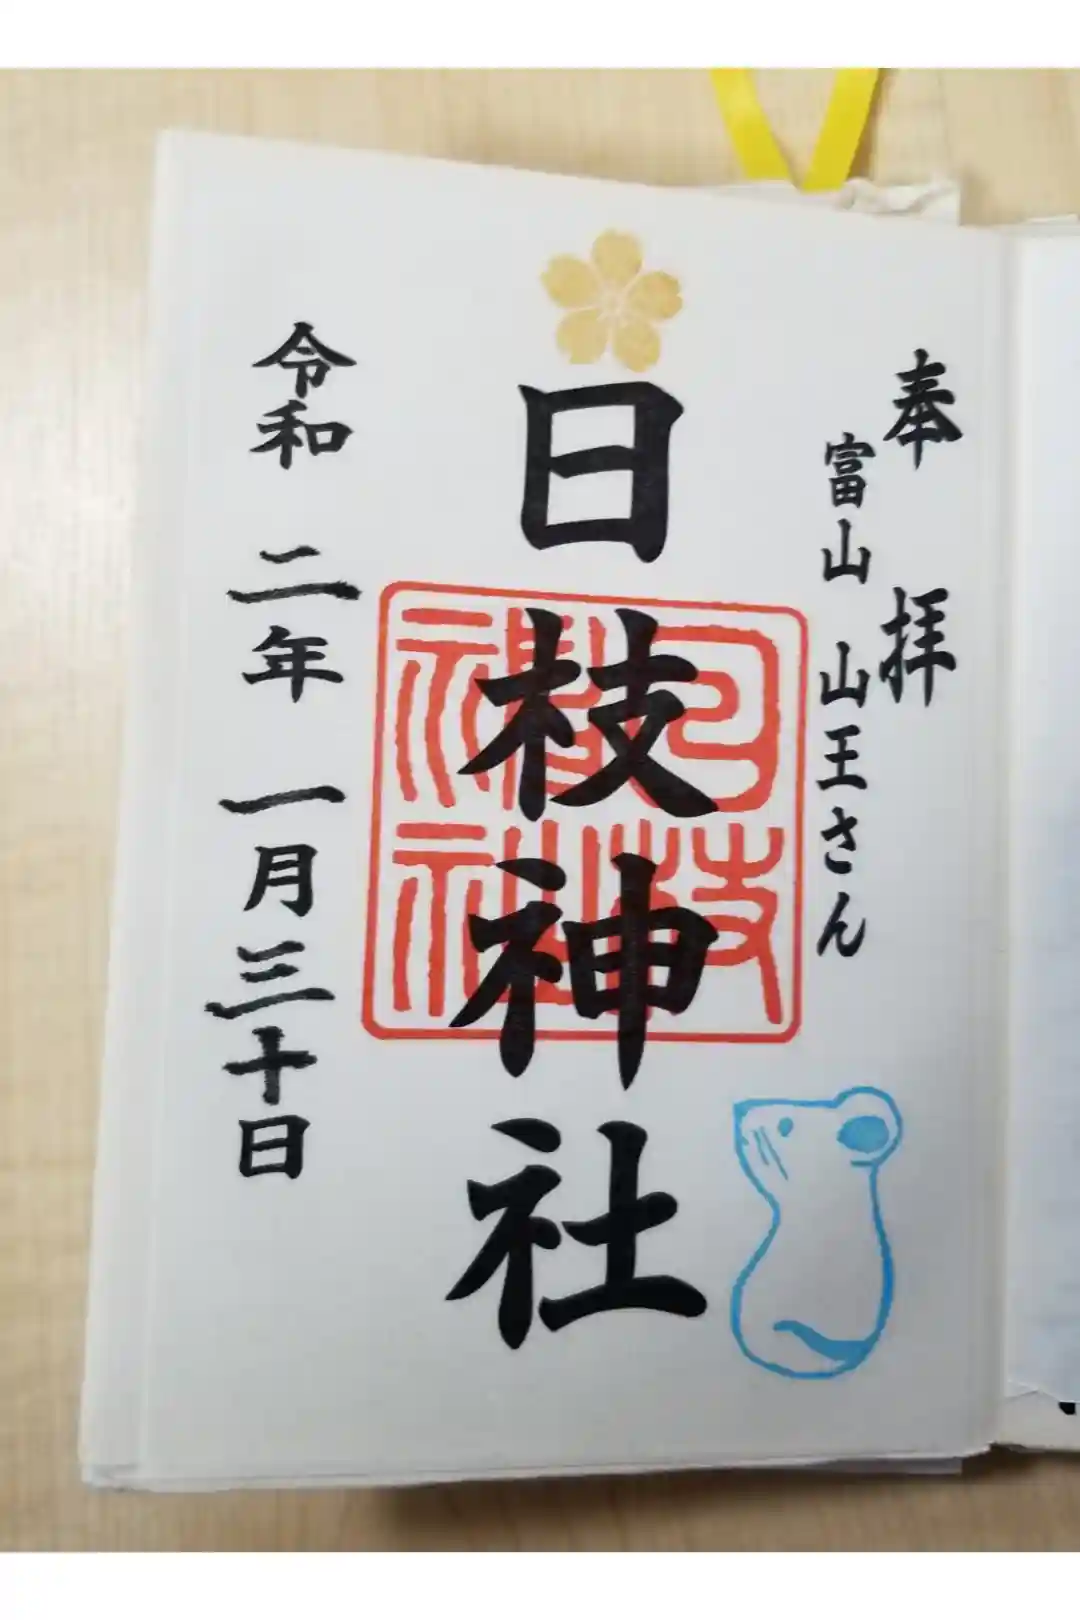 奉拝
富山 山王さん
日枝神社
日枝神社
令和 二年 一月三十日